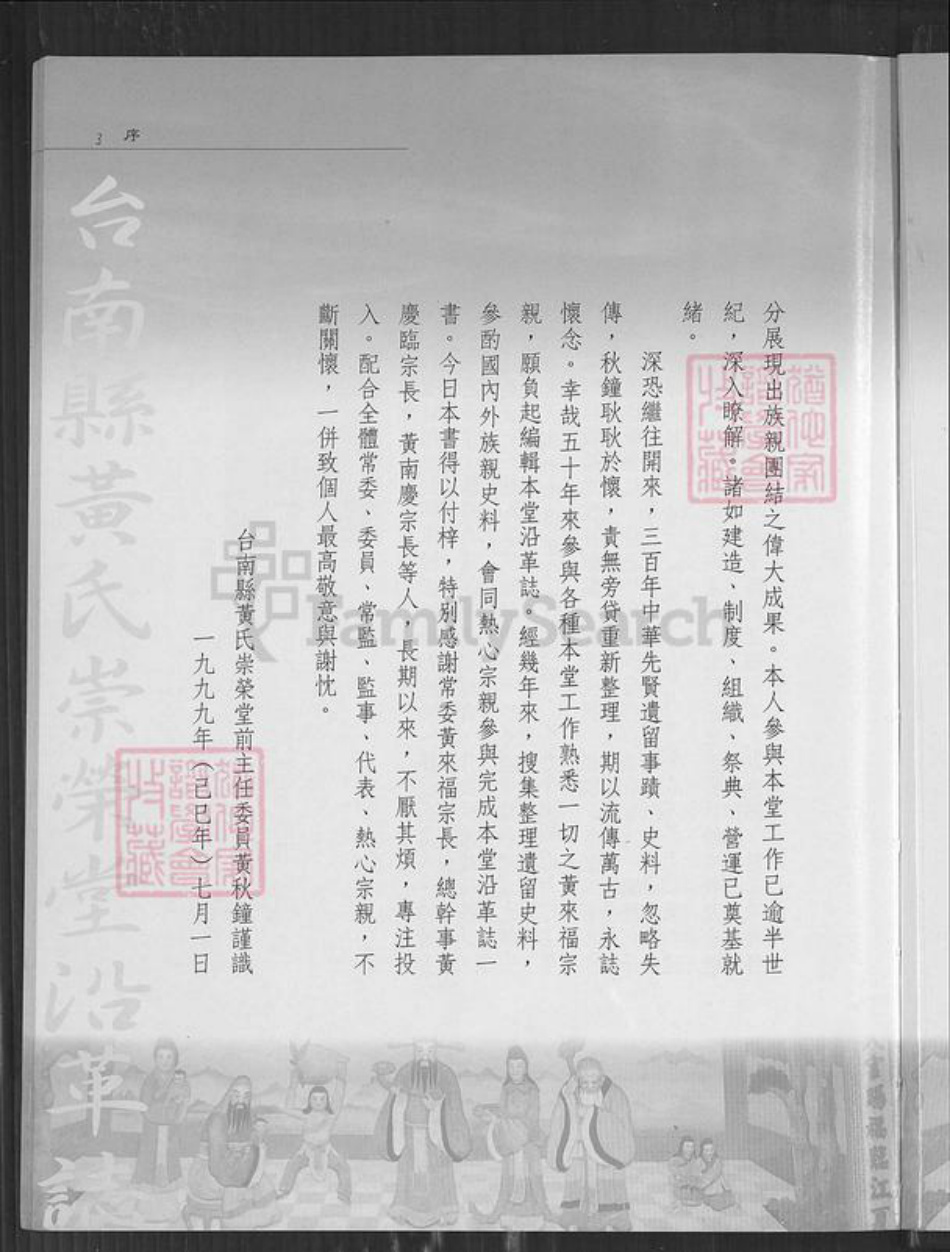 3 序
分展現出族親團結之偉大成果。本人參與本堂工作已逾半世
紀，深入瞭解。諸如建造、制度、組織、祭典、營運已奠基就
緒。
深恐繼往開來，三百年中華先賢遺留事蹟、史料，忽略失
傳，秋鐘耿耿於懷，責無旁貸重新整理，期以流傳萬古，永誌
懷念。幸哉五十年來參與各種本堂工作熟悉一切之黃來福宗
親，願負起編輯本堂沿革誌。經幾年來，搜集整理遺留史料，
參酌國內外族親史料，會同熱心宗親參與完成本堂沿革誌一
書。今日本書得以付梓，特別感謝常委黃來福宗長，總幹事黃
慶臨宗長，黃南慶宗長等人，長期以來，不厭其煩，專注投
入。配合全體常委、委員、常監、監事、代表、熱心宗親，不
斷關懷，一併致個人最高敬意與謝忱。
台南縣黃氏崇榮堂前主任委員黃秋鐘謹識
一九九九年（己巳年）七月一日
台南縣黃氏崇榮堂沿革誌
FamilySearch
猶他家
譜學會
收藏
猶他家
譜學會
收藏